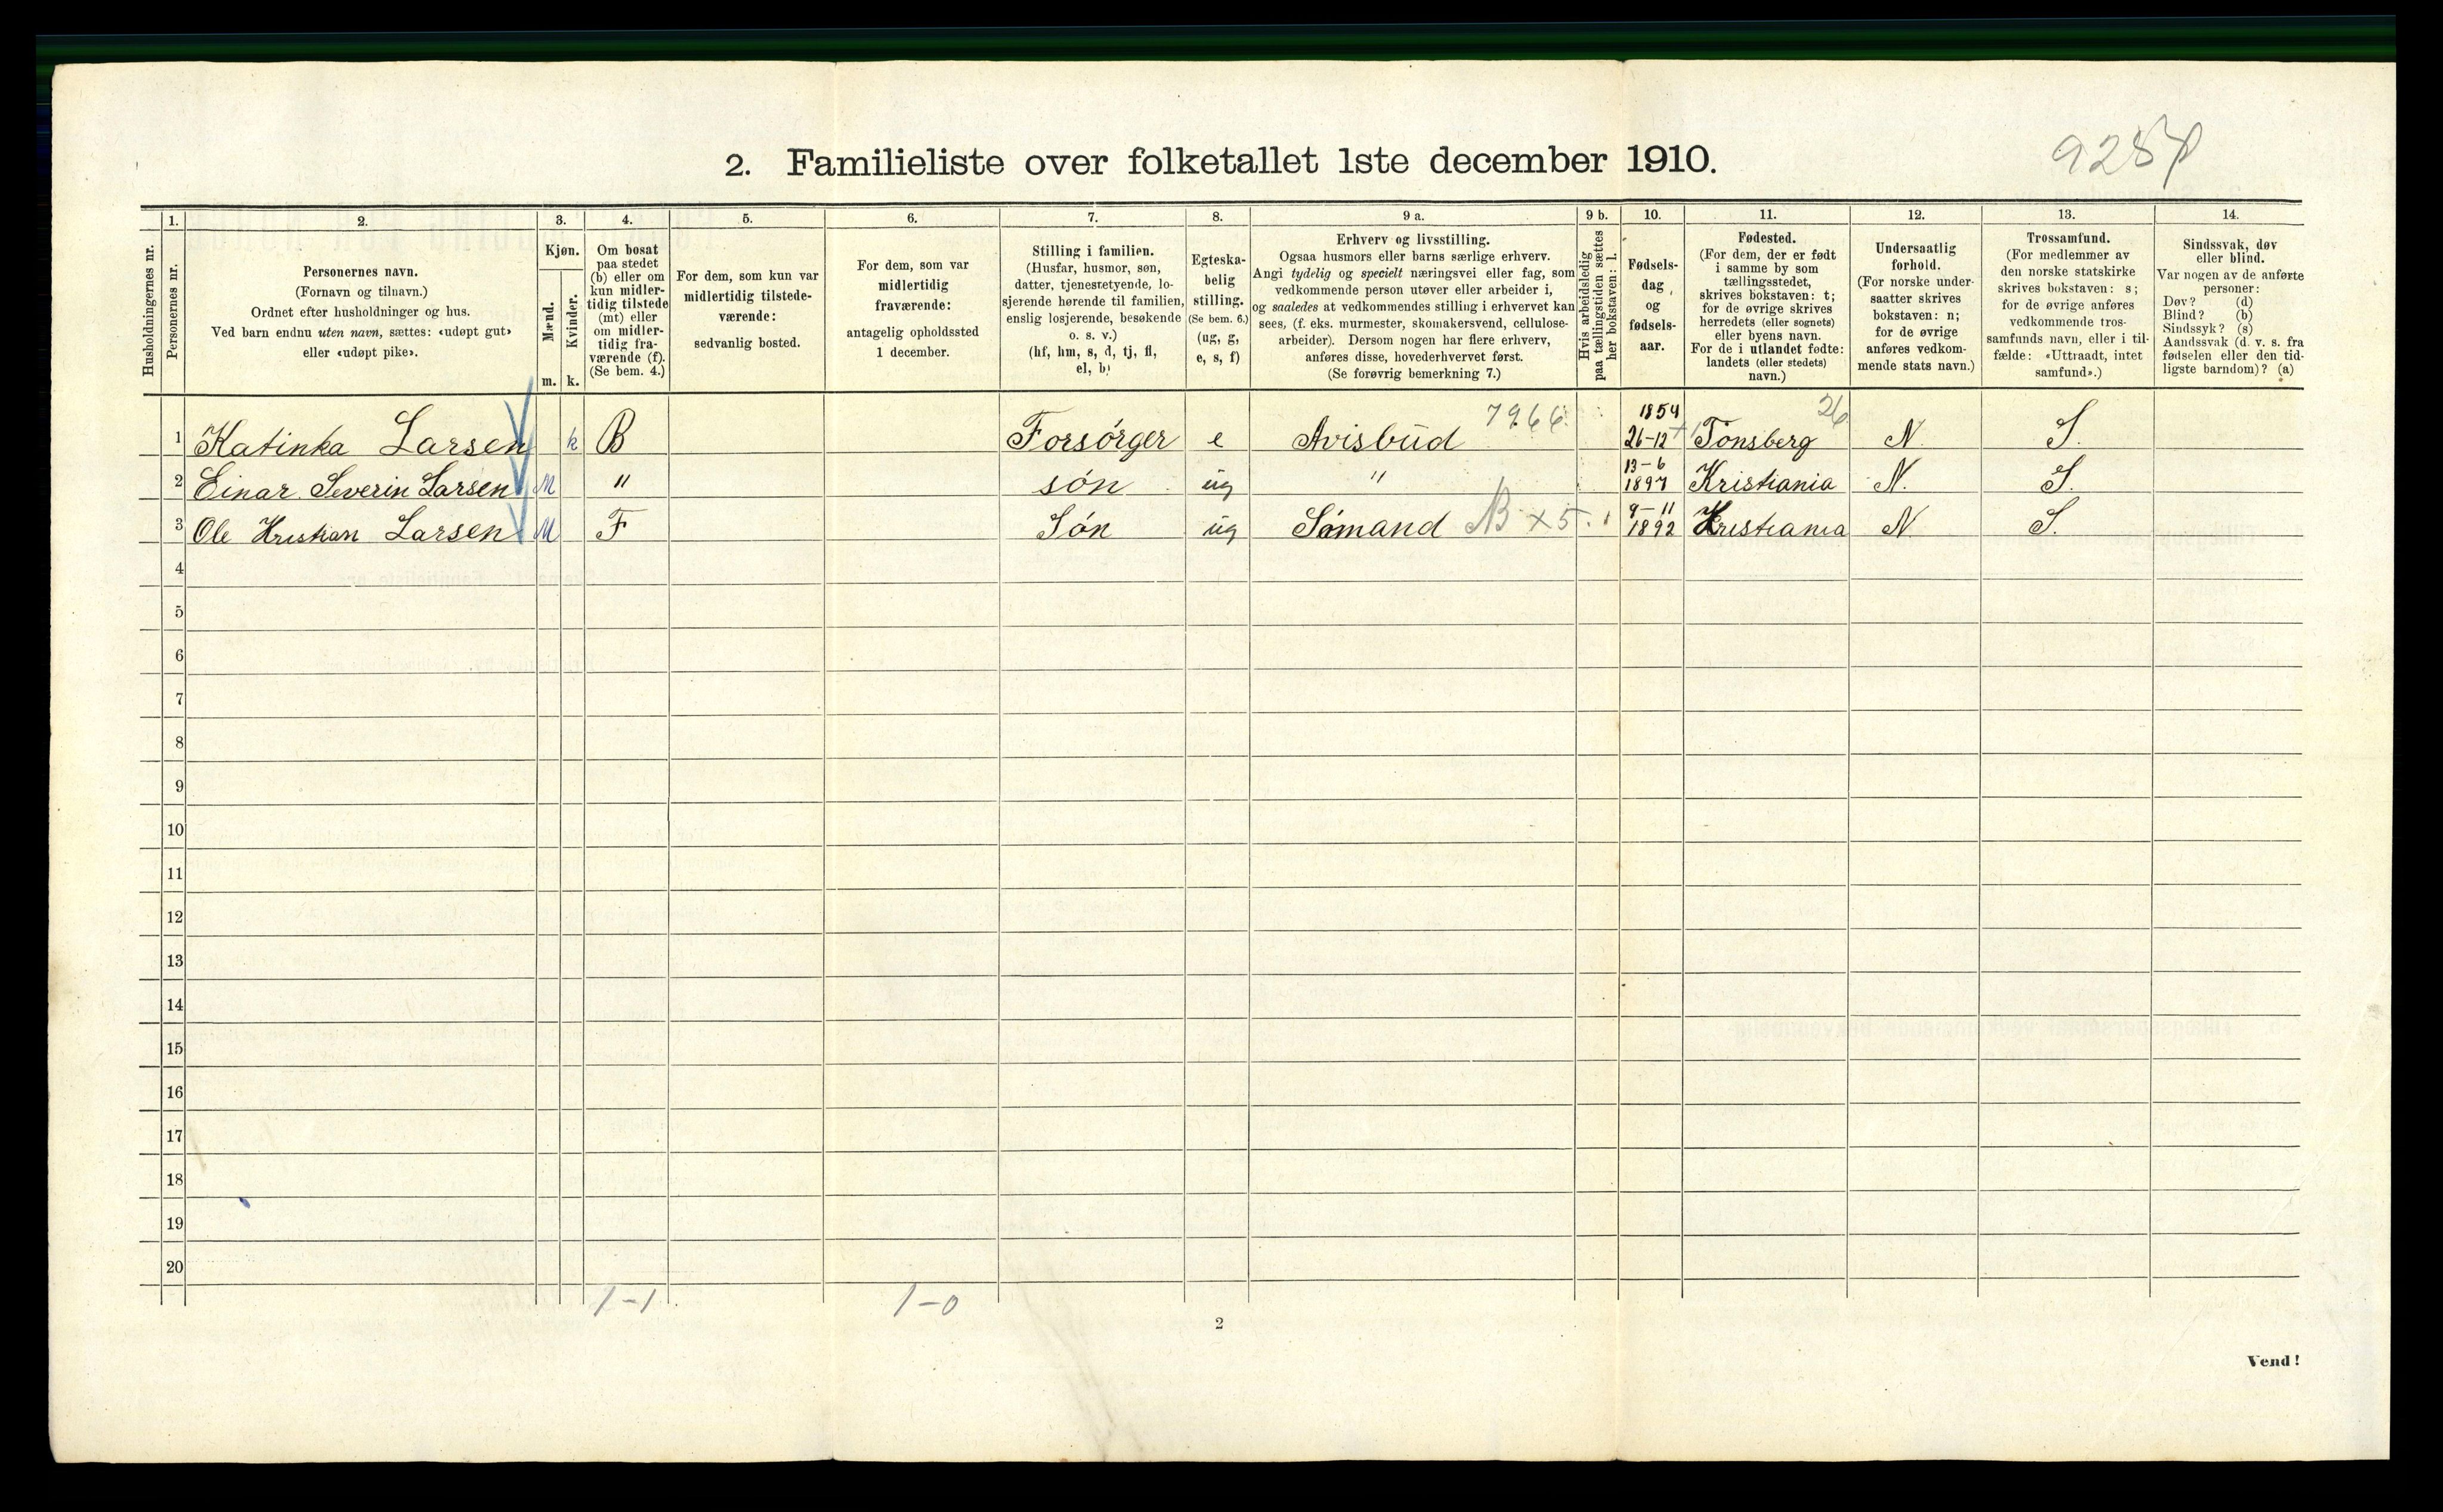 2. Familieliste over folketallet 1ste december 1910.
Husholdningernes nr.
1.
Personernes nr.
2.
Personernes navn.
(Fornavn og tilnavn.)
Ordnet efter husholdninger og hus.
Ved barn endnu uten navn, sættes: «udøpt gut»
eller «udøpt pike».
3.
Kjøn.
Mænd.
Kvinder.
m. k.
4.
Om bosat
paa stedet
(b) eller om
kun midler-
tidig tilstede
(mt) eller
om midler-
tidig fra-
værende (f).
(Se bem. 4.)
5.
For dem, som kun var
midlertidig tilstede-
værende:
sedvanlig bosted.
6.
For dem, som var
midlertidig
fraværende:
antagelig opholdssted
1 december.
7.
Stilling i familien.
(Husfar, husmor, søn,
datter, tjenestetyende, lo-
sjerende hørende til familien,
enslig losjerende, besøkende
o. s. v.)
(hf, hm, s, d, tj, fl,
el, b)
8.
Egteska-
belig
stilling.
(Se bem. 6.)
(ug, g,
e, s, f)
9 a.
Erhverv og livsstilling.
Ogsaa husmors eller barns særlige erhverv.
Angi tydelig og specielt næringsvei eller fag, som
vedkommende person utøver eller arbeider i,
og saaledes at vedkommendes stilling i erhvervet kan
sees, (f. eks. murmester, skomakersvend, cellulose-
arbeider). Dersom nogen har flere erhverv,
anføres disse, hovederhvervet først.
(Se forøvrig bemerkning 7.)
9 b.
Hvis arbeidsledig
paa tællingstiden sættes
her bokstaven: l.
10.
Fødsels-
dag
og
fødsels-
aar.
11.
Fødested.
(For dem, der er født
i samme by som
tællingsstedet,
skrives bokstaven: t;
for de øvrige skrives
herredets (eller sognets)
eller byens navn.
For de i utlandet fødte:
landets (eller stedets)
navn.)
12.
Undersaatlig
forhold.
(For norske under-
saatter skrives
bokstaven: n;
for de øvrige
anføres vedkom-
mende stats navn.)
13.
Trossamfund.
(For medlemmer av
den norske statskirke
skrives bokstaven: s;
for de øvrige anføres
vedkommende tros-
samfunds navn, eller i til-
fælde: «Uttraadt, intet
samfund».)
14.
Sindssvak, døv
eller blind.
Var nogen av de anførte
personer:
Døv? (d)
Blind? (b)
Sindssyk? (s)
Aandssvak (d. v. s. fra
fødselen eller den tid-
ligste barndom)? (a)
1 Katinka Larsen k B Forsörger e Avisbud 7966 1854 26-12 Tönsberg 26 N. S.
2 Einar Severin Larsen M " sön ug " 13-6 1897 Kristiania N. S.
3 Ole Kristian Larsen M F Sön ug Sömand B x 5. 9-11 1892 Kristiania N S.
4
5
6
7
8
9
10
11
12
13
14
15
16
17
18
19
20
1-1 1-0
2
Vend!